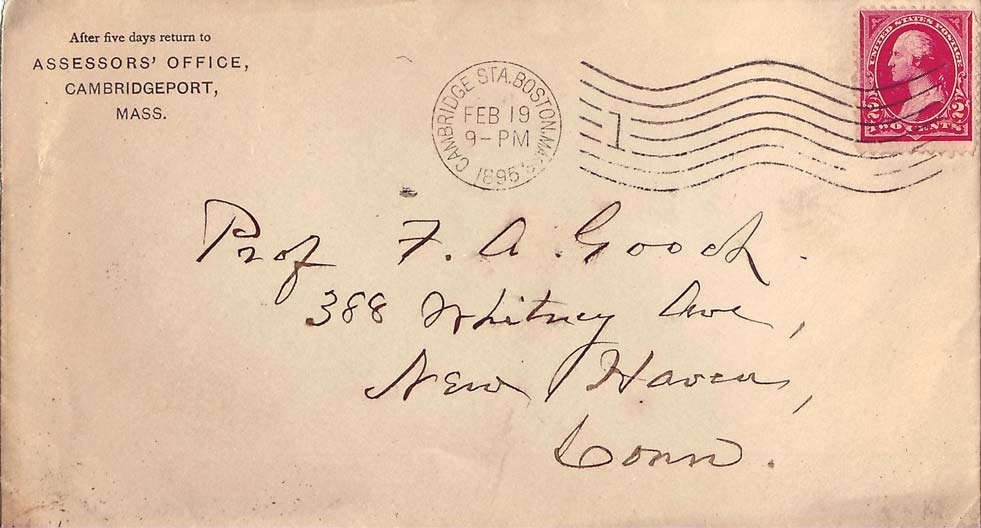 After five days return to
ASSESSORS' OFFICE,
CAMBRIDGEPORT,
MASS.
CAMBRIDGE STA. BOSTON, MASS.
FEB 19
9-PM
1895
1
UNITED STATES POSTAGE
2 2
TWO CENTS
Prof F. A. Gooch.
388 Whitney Ave,
New Haven,
Conn.